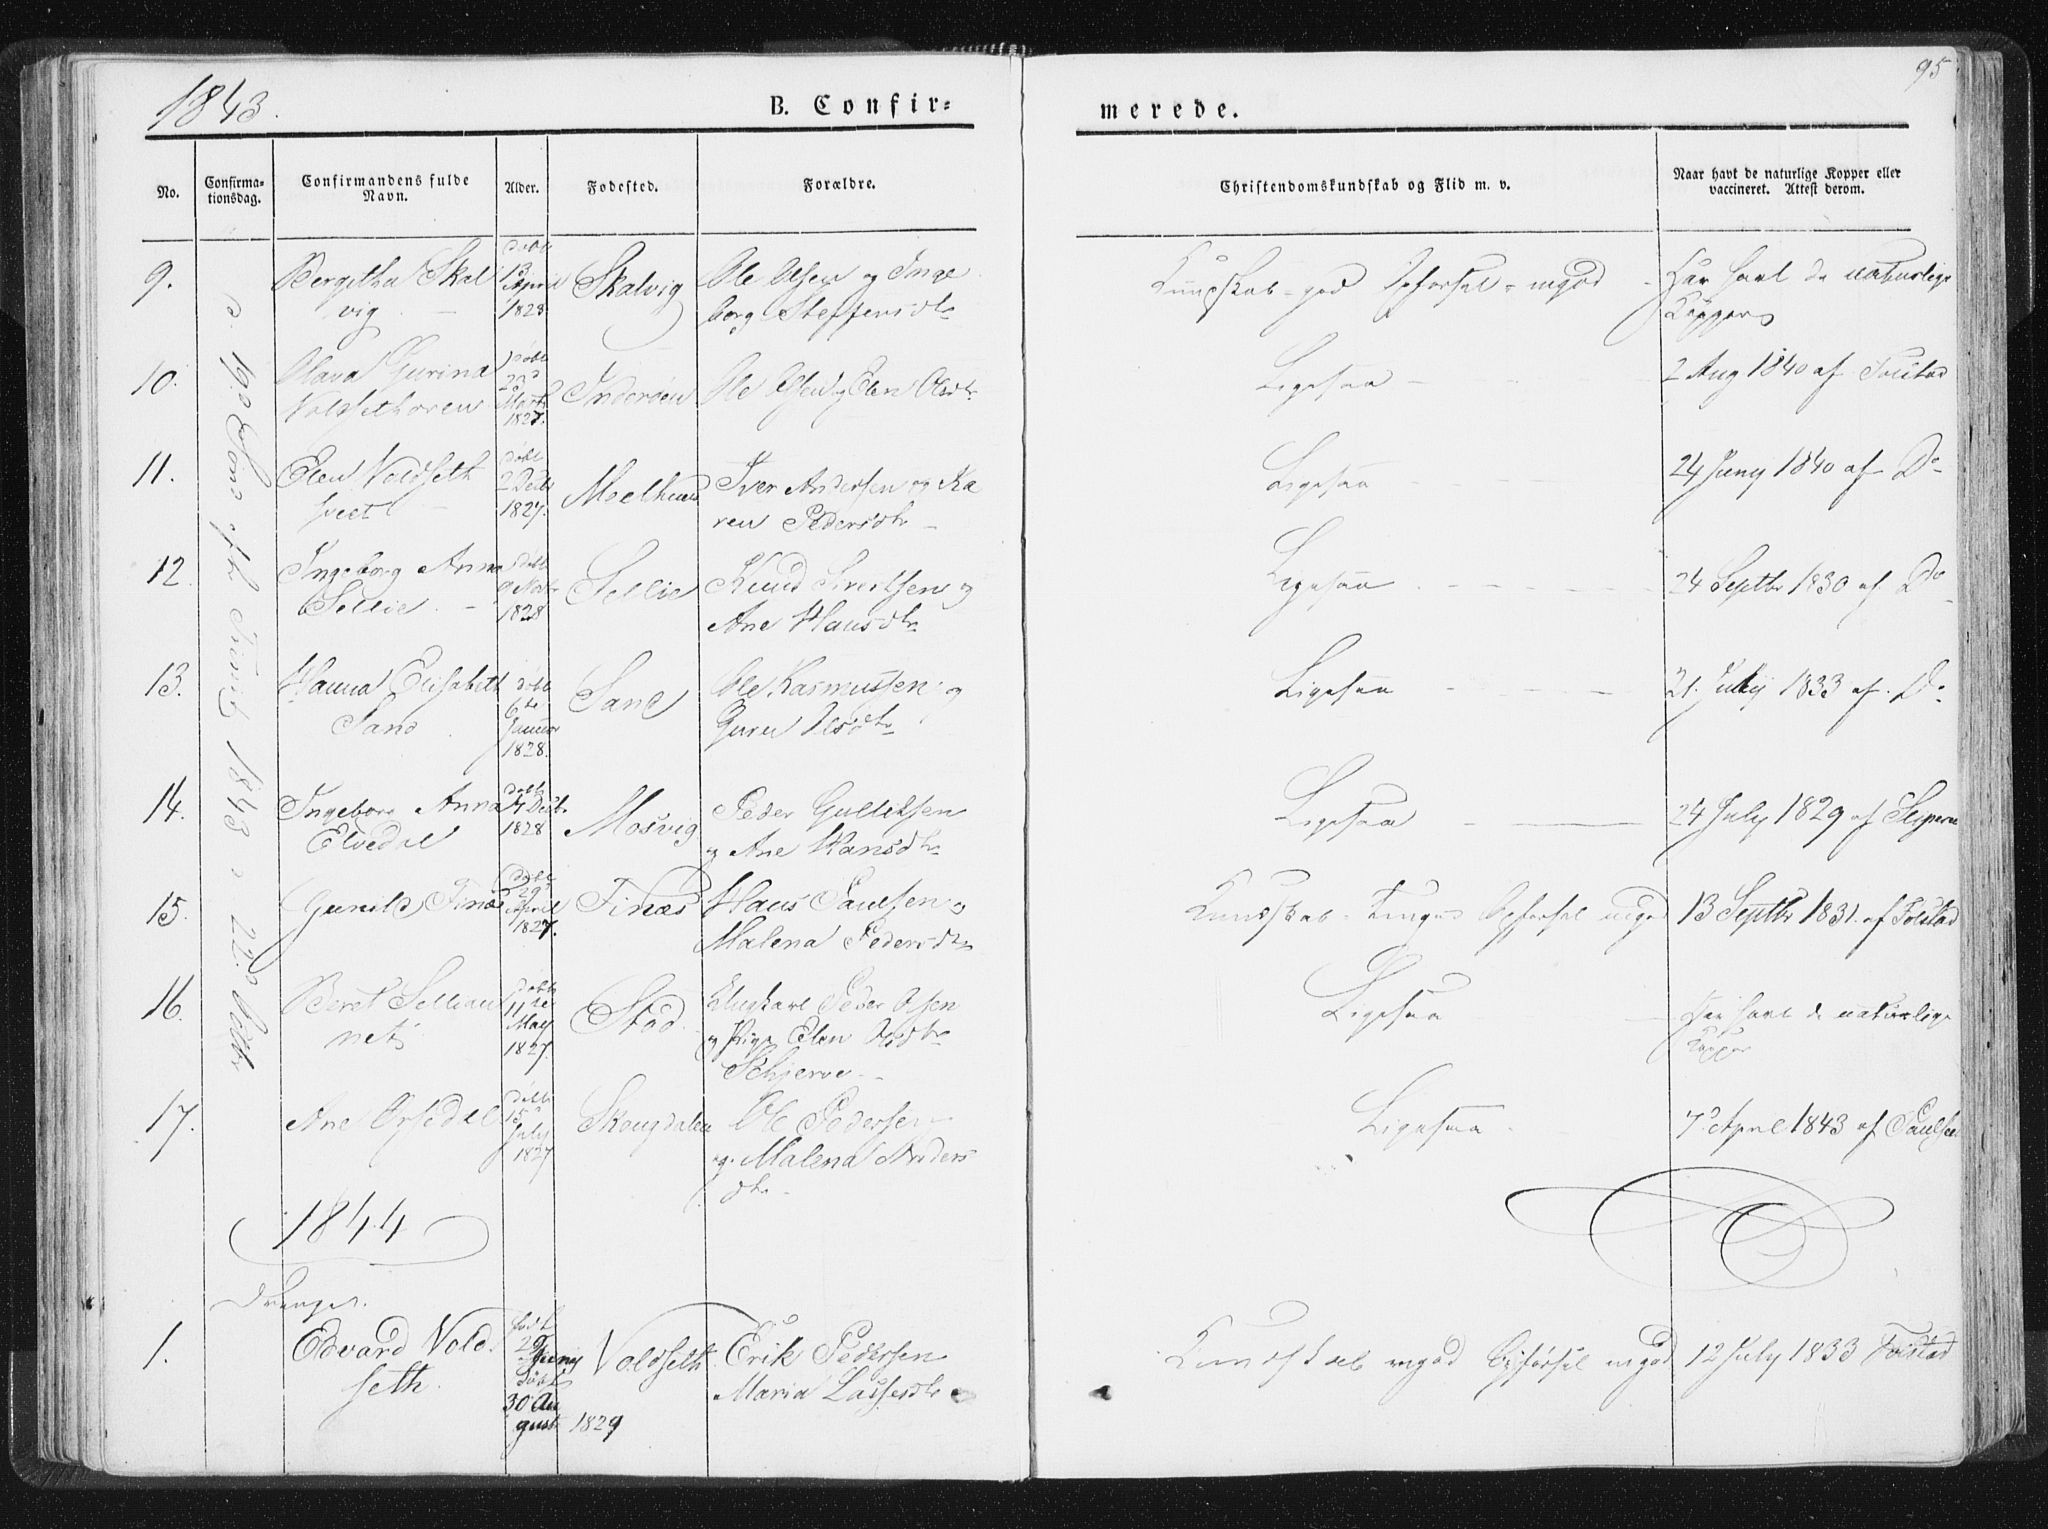 1843.
B. Confir=
merede.
95
No.
Confirma-
tionsdag.
Confirmandens fulde
Navn.
Alder.
Fødested.
Forældre.
Christendomskundskab og Flid m. v.
Naar havt de naturlige Kopper eller
vaccineret. Attest derom.
1843
9.
Bergitha Skal
vig
døbt
13
April
1828
Skalvig
Ole Olsen og Inge
borg Steffensdtr
Kundskab - god Opførsel - mgod
Har havt de naturlige
Kopper
10.
Olava Gurina
døbt
Marts
1827.
Inderøen
Ole Olsen og Elen Olsdtr
Ligesaa
2 Aug 1840 af Folstad
11.
Elen Voldseth
døbt
2 Decbr
1827.
Iver Andersen og Ka
ren Pedersdtr
Ligesaa
24 Juny 1840 af Do
12
Ingeborg Anna
Sellie
døbt
9 Novbr
1828
Sellie
Knud Sivertsen og
Ane Hansdtr
Ligesaa
24 Septbr 1830 af Do
13.
Hanna Elisabeth
Sand
døbt
6te
Januar
1828.
Sand
Ole Rasmussen og
Guru Olsdtr
Ligesaa
21. July 1833 af Do
14.
Ingeborg Anna
Elvedal
døbt
Decbr
1828
Mosvig
Peder Gulliksen
og Ane Hansdtr
Ligesaa
24 July 1829 af
15.
Gunild Tinæs
døbt
29
April
1827.
Tinæs
Hans Paulsen og
Malena Pedersdtr
Kundskab - Opførsel mgod
13 Septbr 1831. af Folstad
16.
Beret Sellian
net
døbt
11te
May
1827.
Stod
Ungkarl Peder Olsen
og Pige Elen Olsdtr
Schjerve
Ligesaa
Har havt de naturlige
Kopper
17.
Ane
døbt
15
July
1827
Skougdalen
Ole Pedersen
og Malena Anders
dtr
Ligesaa
7 April 1843 af Paulsen
1844
Drenge.
1.
Edvard Vold
seth.
født
29
Juny
døbt
30 Au
gust 1829
Voldseth
Erik Pedersen
Maria Lassesdtr
Kundskab mgod Opførsel mgod
12 July 1833 Folstad